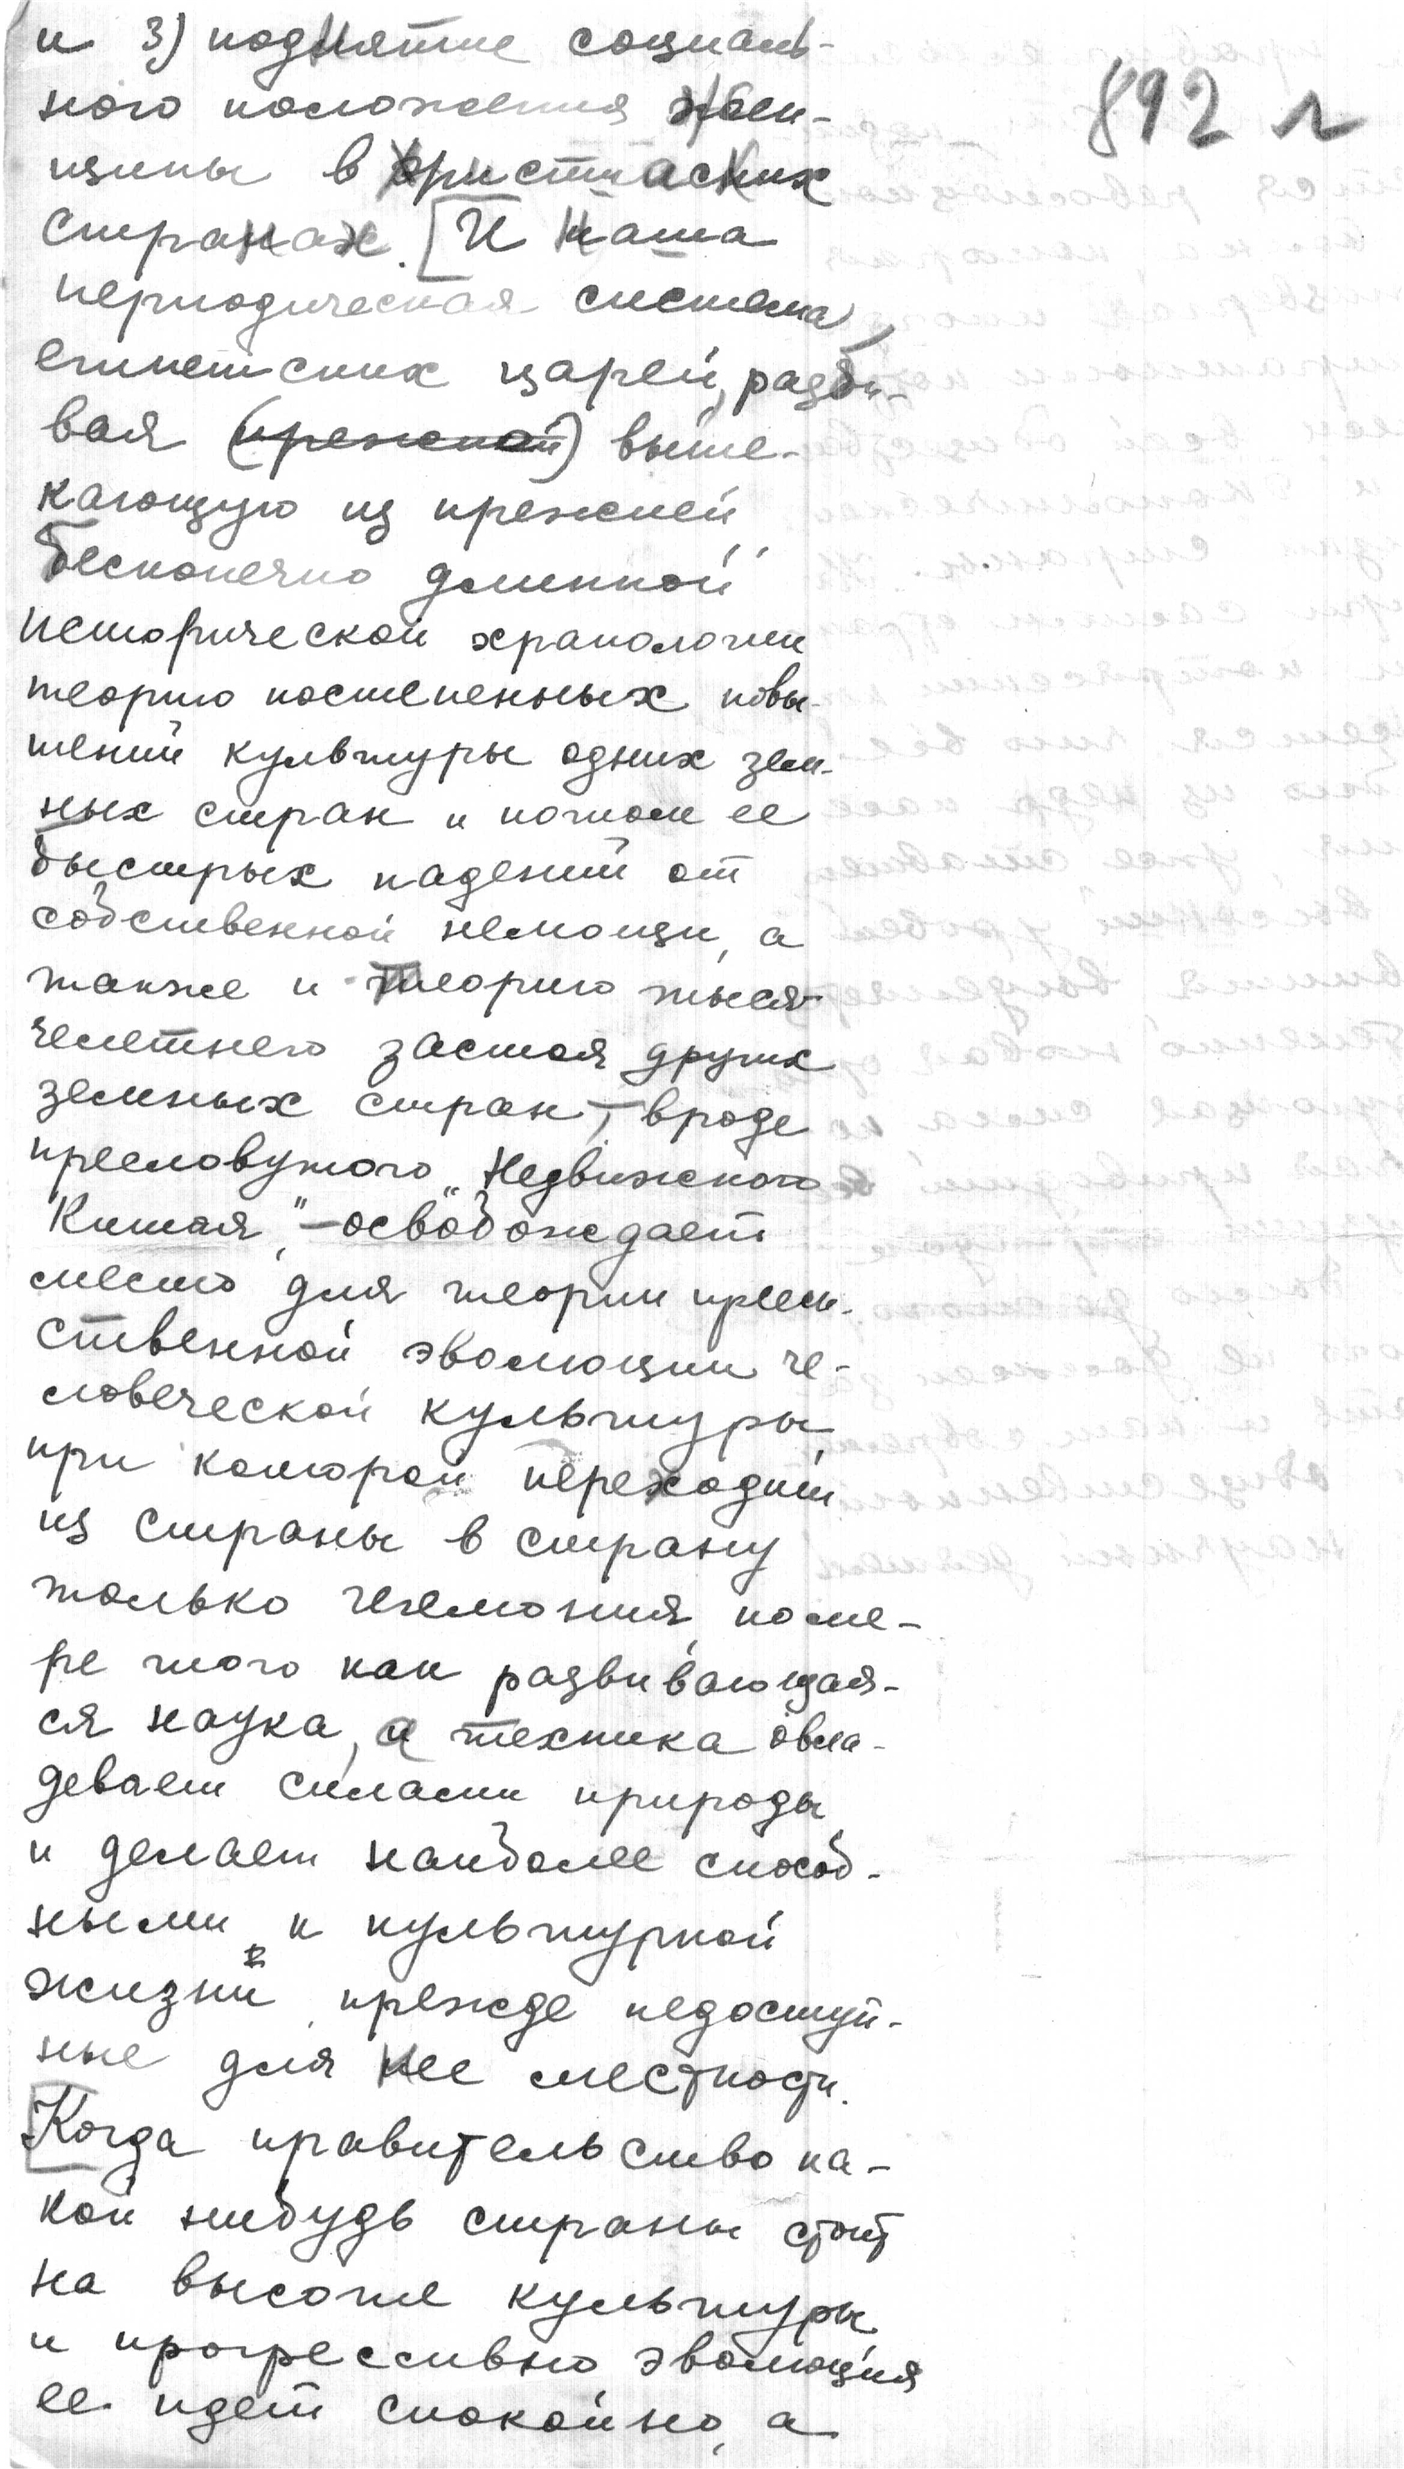 892 л
и 3) поднятие социаль-
ного положения жен-
щины в христиаских
странах. [И наша
периодическая система
египетских царей, разби-
вая (прежней) выте-
кающую из прежней
бесконечно длинной
исторической хранологии
теорию постепенных повы-
шений культуры одних зем-
ных стран и потом ее
быстрых падений от
собственной немощи, а
также и теорию тыся-
челетнего застоя других
земных стран, – вроде
пресловутого „Недвижного
Китая", – освобождает
место для теории преем-
ственной эволюции че-
ловеческой культуры,
при которой переходит
из страны в страну
только гегемония, по ме-
ре того как развивающая-
ся наука, и техника овла-
девает силами природы,
и делает наиболее способ-
ными к культурной
жизни прежде недоступ-
ные для нее местности.
[Когда правительство ка-
кой нибудь страны стоит
на высоте культуры
и прогрессивно эволюция
ее идет спокойно, а